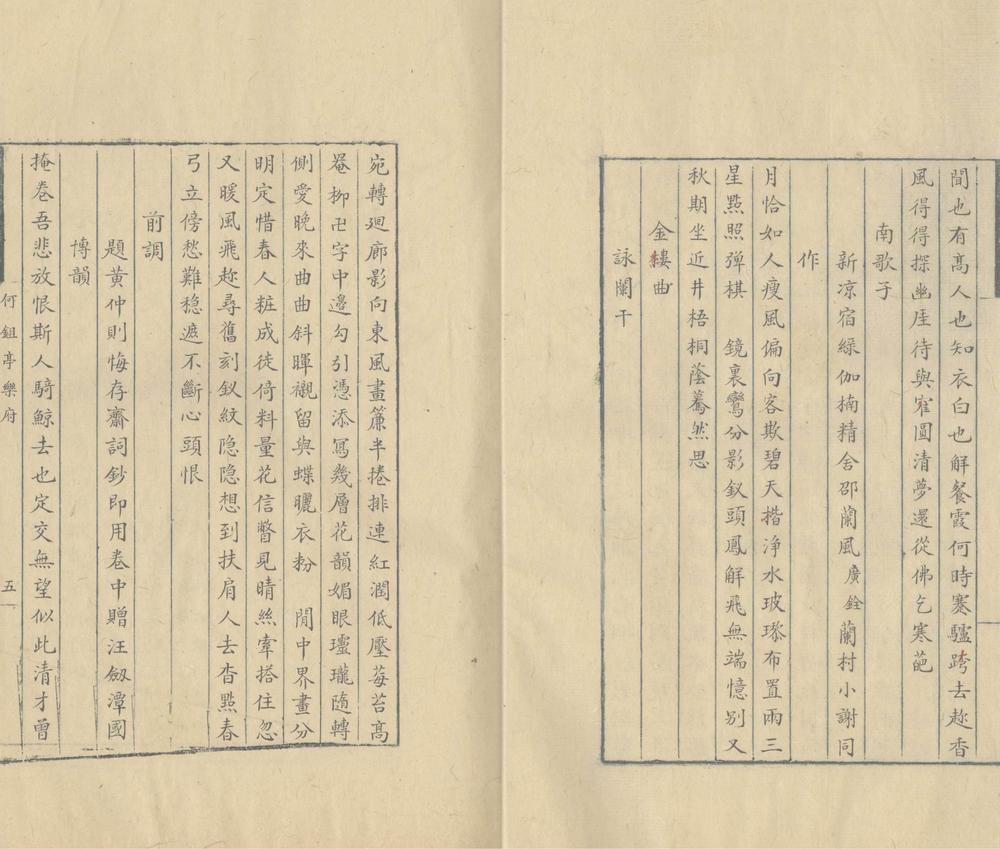 間也有髙人也知衣白也解餐霞何時蹇驢跨去趂香
風得得探幽厓待與窄圓清夢還從佛乞寒葩
南歌子
新凉宿緑伽楠精舍邵蘭風廣銓蘭村小謝同
作
月恰如人瘦風偏向客欺碧天揩淨水玻瓈布置兩三
星㸃照弹棋　鏡裏鸞分影釵頭鳳解飛無端憶别又
秋期坐近井梧桐蔭驀然思
金縷曲
詠闌干
宛轉廻廊影向東風畫簾半捲排連紅濶低壓莓苔髙
罨栁卍字中邊勾引憑添冩幾層花韻媚眼瓏隨轉
側愛晚來曲曲斜暉襯留與蝶曬衣粉　閒中界畫分
明定惜春人粧成徒倚料量花信瞥見晴絲牽搭住忽
又暖風飛趂尋舊刻釵紋隐隐想到扶肩人去杳㸃春
弓立傍愁難穏遮不斷心頭恨
前調
題黄仲則悔存齋詞鈔即用卷中贈汪劔潭國
博韻
掩巻吾悲放恨斯人騎鯨去也定交無望似此清才曾
何鉏亭樂府
五